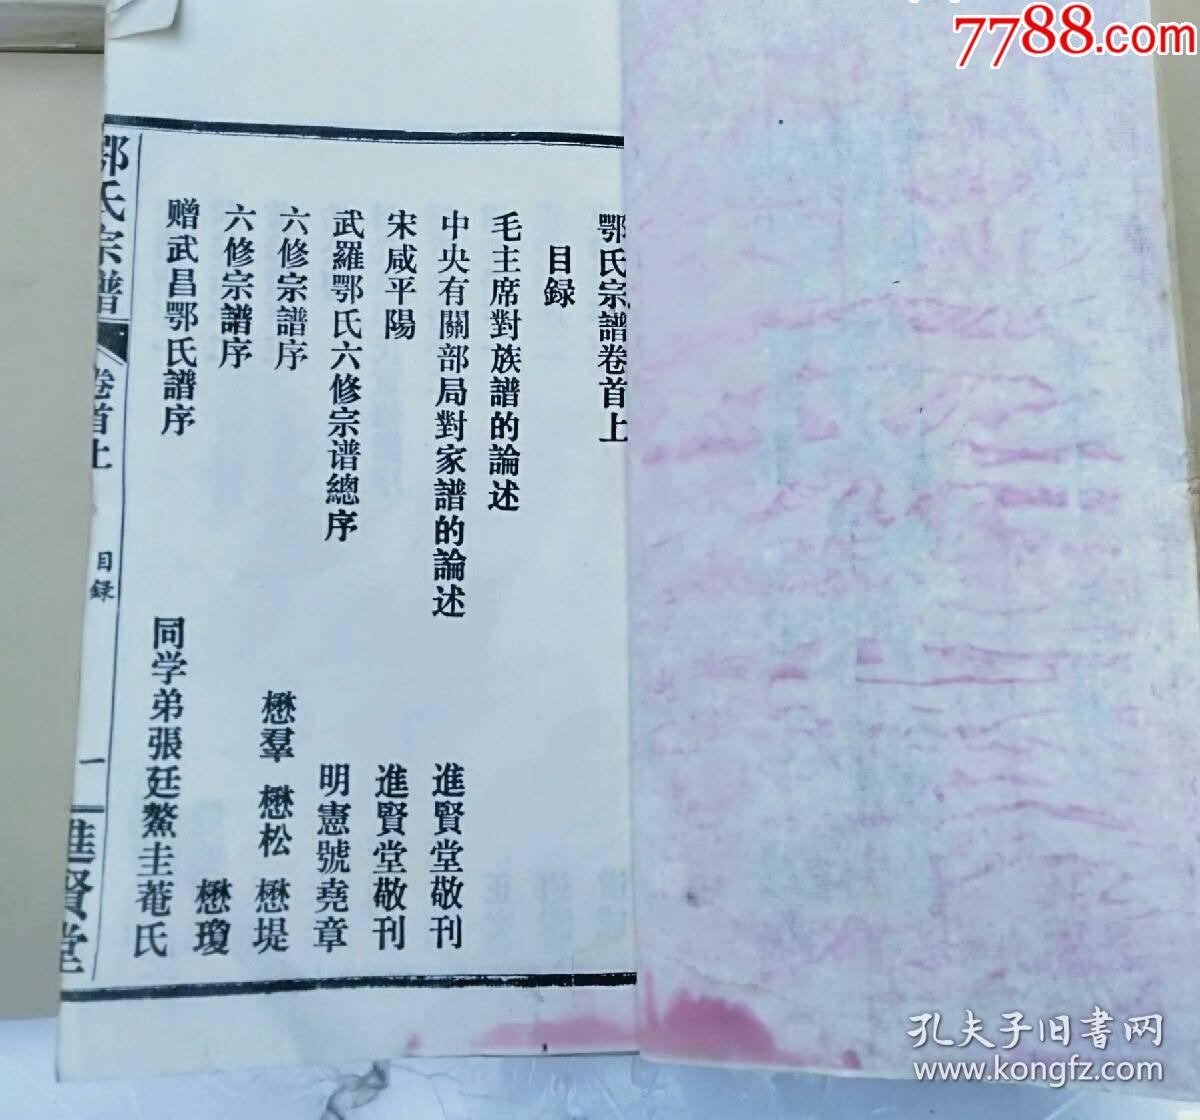 7788.com
鄂氏宗譜卷首上
目録
毛主席對族譜的論述
中央有關部局對家譜的論述 進賢堂敬刊
宋咸平陽 進賢堂敬刊
武羅鄂氏六修宗谱總序 明憲號堯章
六修宗譜序 懋羣 懋松 懋堤
六修宗譜序 懋瓊
赠武昌鄂氏譜序 同学弟張廷鰲圭菴氏
鄂氏宗譜
卷首上
目録
一
進賢堂
孔夫子旧书网
www.kongfz.com